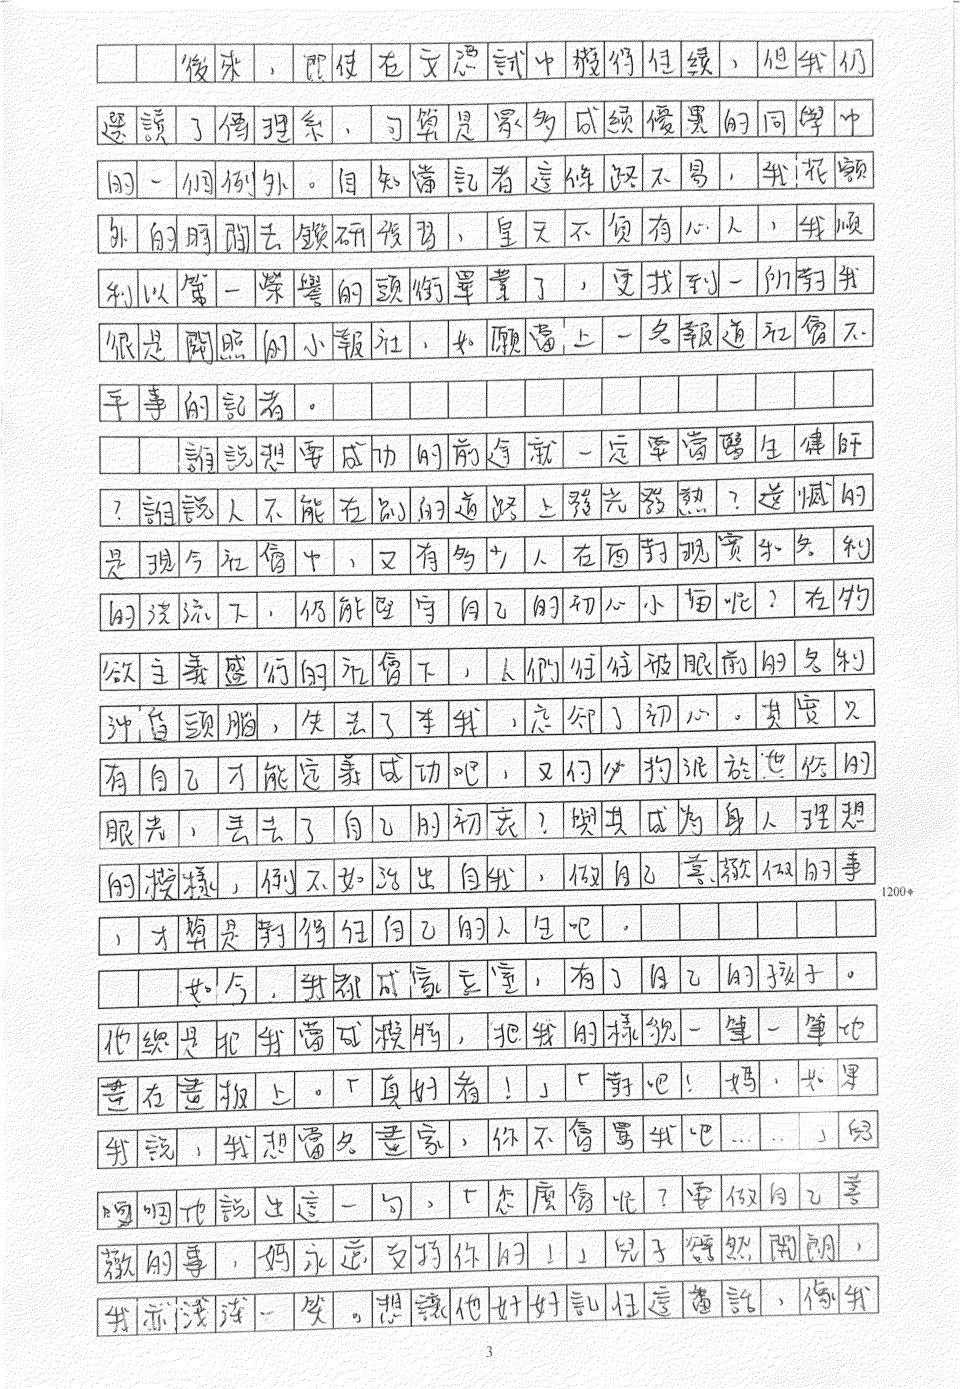 後來，即使在文憑試中獲得佳績，但我仍
選讀了傳理系，可算是眾多成績優異的同學中
的一個例外。自知當記者這條路不易，我花額
外的時間去鑽研複習，皇天不負有心人，我順
利以第一榮譽的頭銜畢業了，更找到一所對我
很是關照的小報社，如願當上一名報道社會不
平事的記者。
誰說想要成功的前途就一定要當醫生律師
？誰說人不能在別的道路上發光發熱？遺憾的
是現今社會中，又有多少人在面對現實和名利
的洪流下，仍能堅守自己的初心小苗呢？在物
欲主義盛行的社會下，人們往往被眼前的名利
沖昏頭腦，失去了本我，忘卻了初心。其實只
有自己才能定義成功吧，又何必拘泥於世俗的
眼光，丟去了自己的初衷？與其成為身人理想
的模樣，倒不如活出自我，做自己喜歡做的事
，才算是對得住自己的人生吧。
1200
如今，我都成家立室，有了自己的孩子。
他總是把我當成模特，把我的樣貌一筆一筆地
畫在畫板上。「真好看！」「對吧！媽，如果
我說，我想當名畫家，你不會罵我吧……」兒
地說出這一句，「怎麼會呢？要做自己喜
歡的事，媽永遠支持你的！」兒子豁然開朗，
我亦淺淺一笑。想讓他好好記住這番話，像我
3